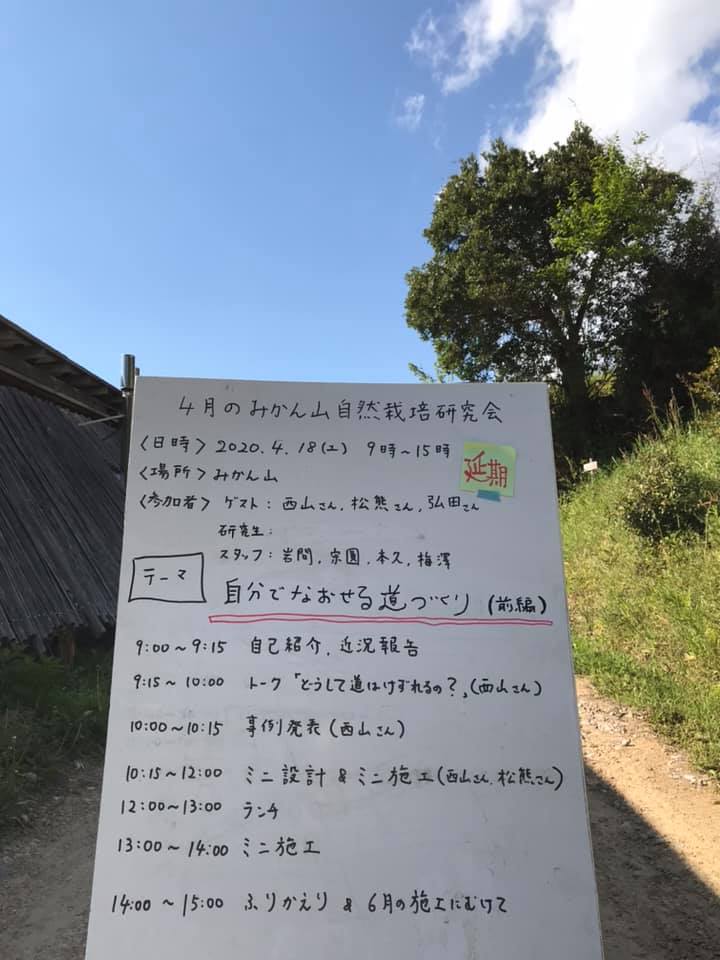 4月のみかん山自然栽培研究会
〈日時〉 2020.4.18(土) 9時〜15時
延期
〈場所〉みかん山
〈参加者〉ゲスト：西山さん、松熊さん、弘田さん
研究生：
スタッフ：岩間、宗圓、本久、梅澤
テーマ
自分でなおせる道づくり (前編)
9:00〜9:15 自己紹介、近況報告
9:15〜10:00 トーク「どうして道はけずれるの？」(西山さん)
10:00〜10:15 事例発表(西山さん)
10:15〜12:00 ミニ設計 & ミニ施工(西山さん、松熊さん)
12:00〜13:00 ランチ
13:00〜14:00 ミニ施工
14:00〜15:00 ふりかえり & 6月の施工にむけて